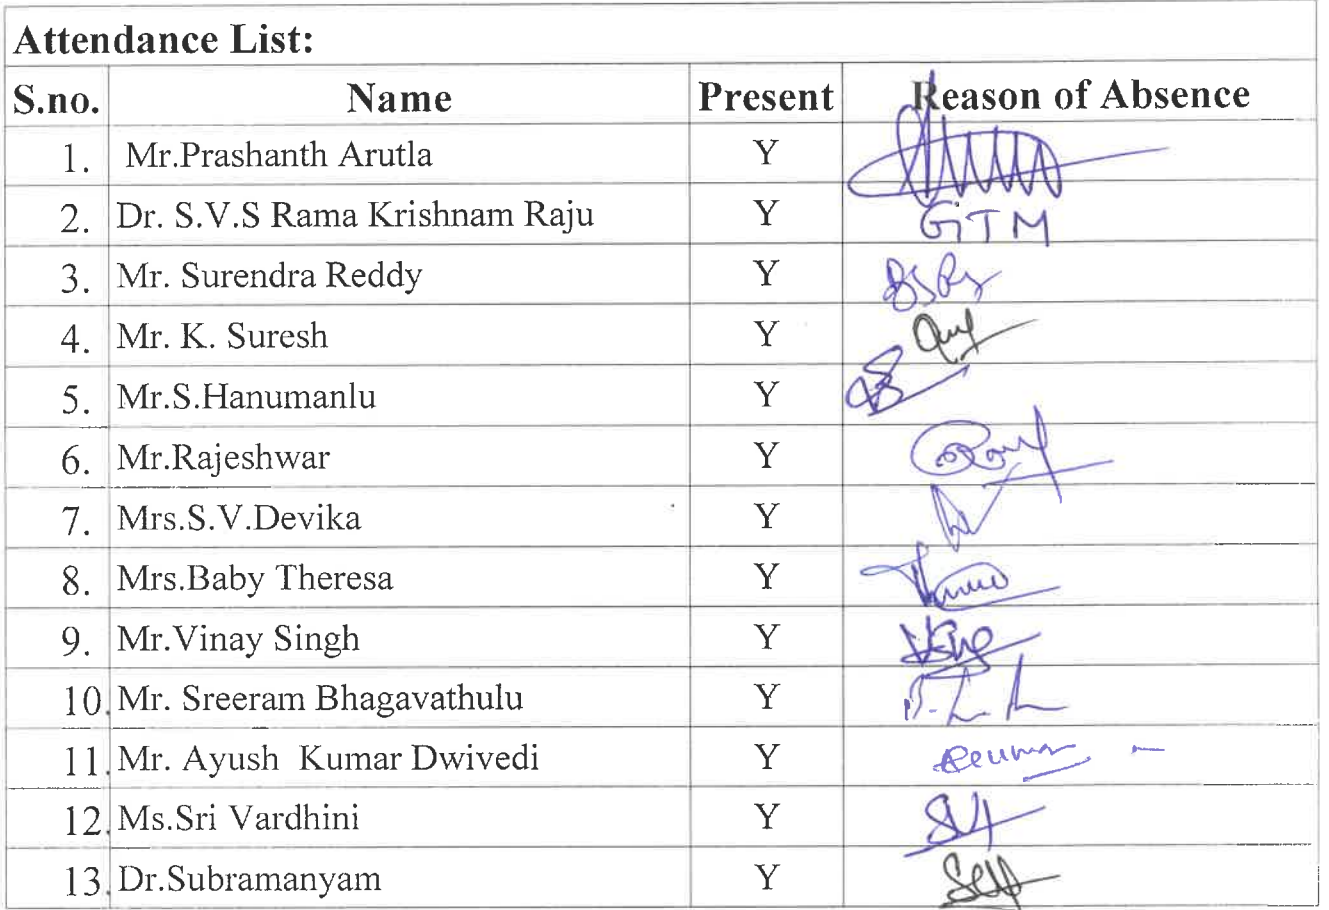 Attendance List:
S.no. Name Present Reason of Absence
1. Mr.Prashanth Arutla Y
2. Dr. S.V.S Rama Krishnam Raju Y GTM
3. Mr. Surendra Reddy Y
4. Mr. K. Suresh Y
5. Mr.S.Hanumanlu Y
6. Mr.Rajeshwar Y
7. Mrs.S.V.Devika Y
8. Mrs.Baby Theresa Y
9. Mr.Vinay Singh Y
10. Mr. Sreeram Bhagavathulu Y
11. Mr. Ayush Kumar Dwivedi Y
12. Ms.Sri Vardhini Y
13. Dr.Subramanyam Y